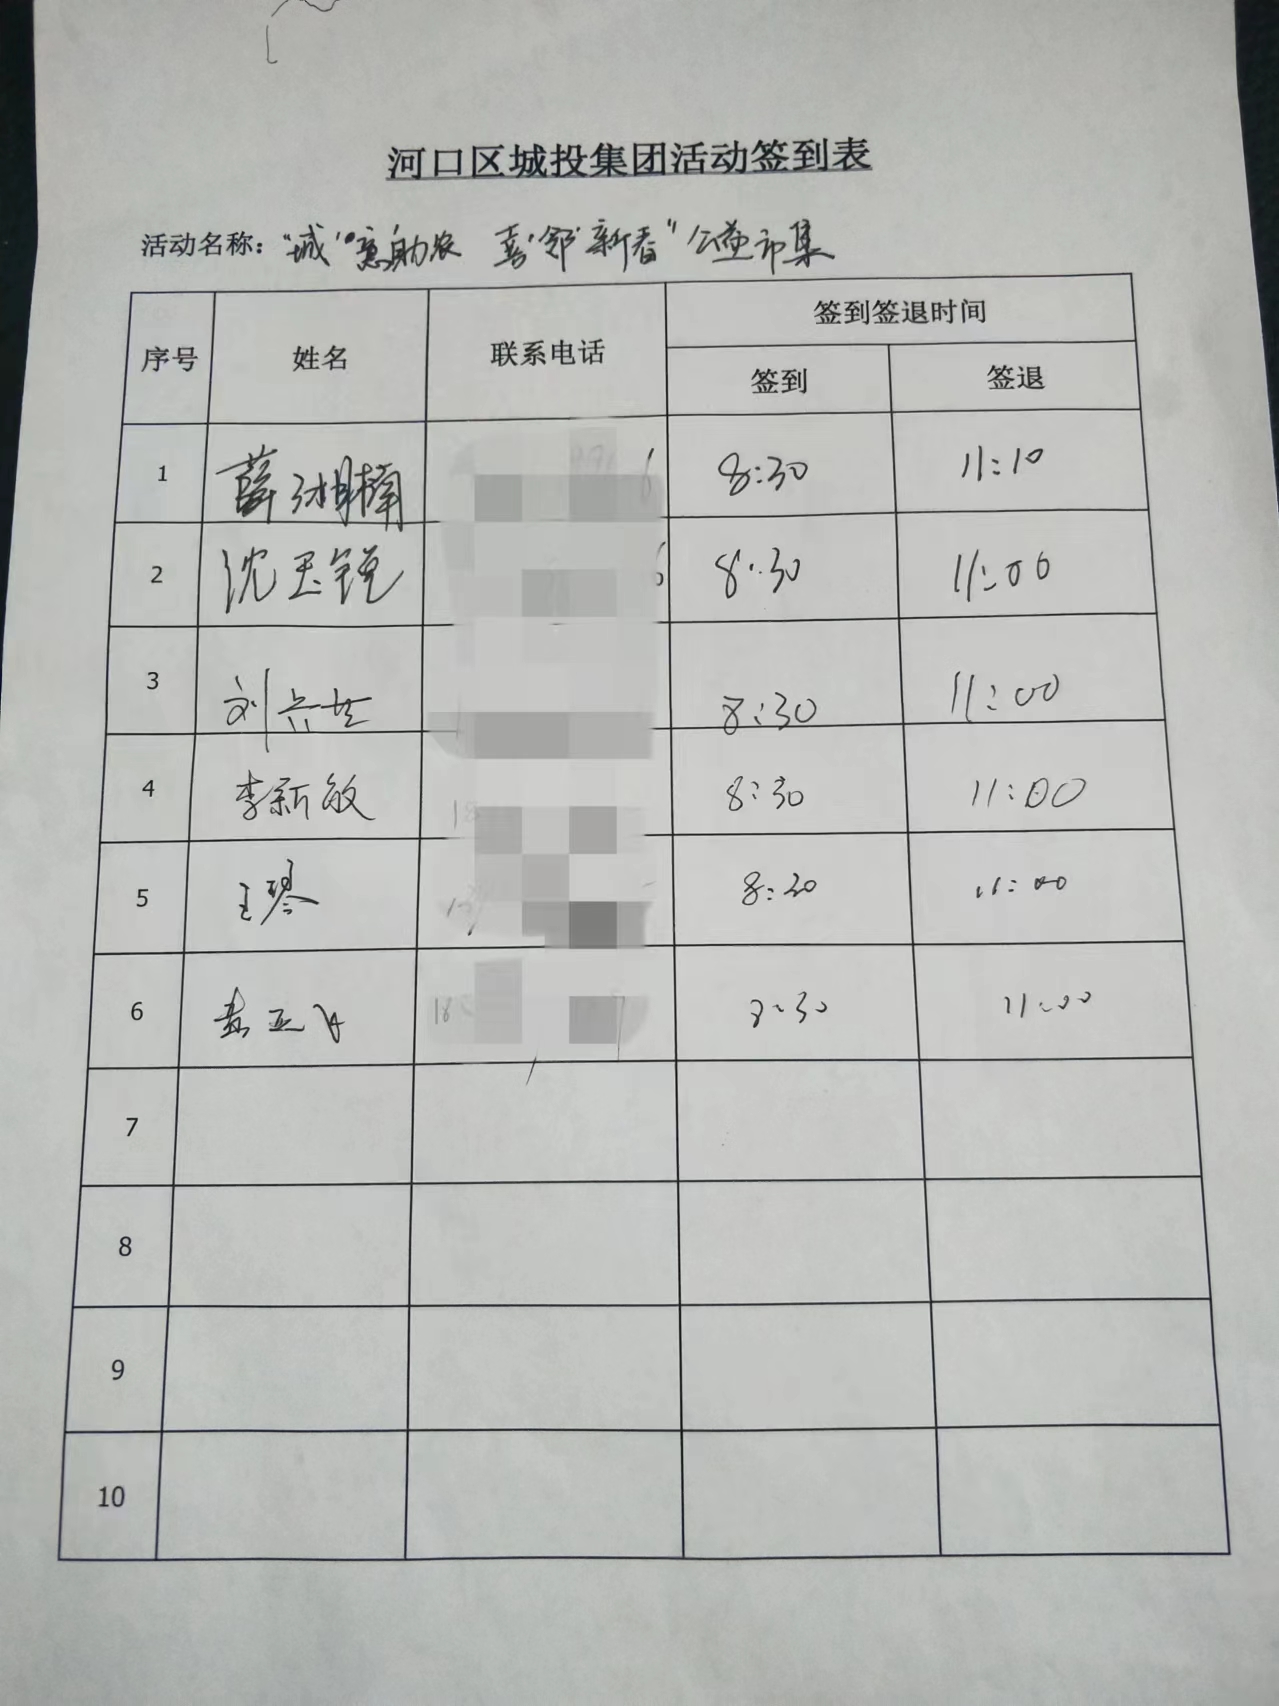 河口区城投集团活动签到表
活动名称：“城”意助农 喜“邻”新春”公益市集
序号 姓名 联系电话 签到签退时间
签到 签退
1 薛湖楠 6 8:30 11:10
2 沈玉 6 8:30 11:00
3 刘 8:30 11:00
4 李新敏 18 8:30 11:00
5 王琴 8:30 11:00
6 18 8:30 11:00
7
8
9
10